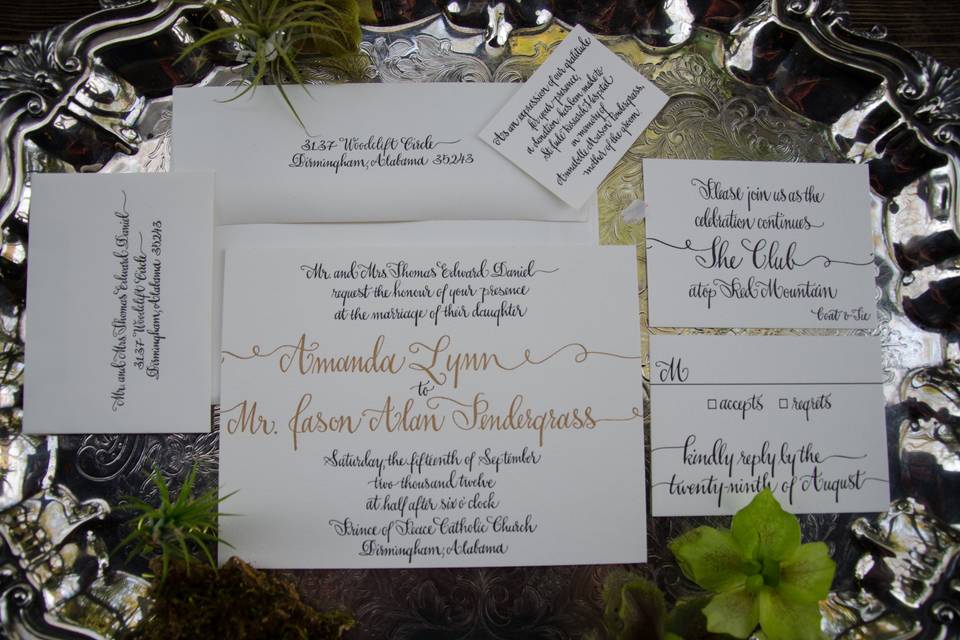 3137 Woodclift Circle
Birmingham, Alabama 35243
As an expression of our gratitude
for your presence,
a donation has been made to
St. Jude Research Hospital
in memory of
Annabelle Mason Pendergrass,
mother of the groom
Mr. and Mrs Thomas Edward Daniel
3137 Woodclift Circle
Birmingham, Alabama 35243
Mr. and Mrs Thomas Edward Daniel
request the honour of your presence
at the marriage of their daughter
Amanda Lynn
to
Mr. Jason Alan Pendergrass
Saturday, the fifteenth of September
two thousand twelve
at half after six o'clock
Prince of Peace Catholic Church
Birmingham, Alabama
Please join us as the
celebration continues
The Club
atop Red Mountain
Coat & Tie
M
accepts regrets
kindly reply by the
twenty-ninth of August